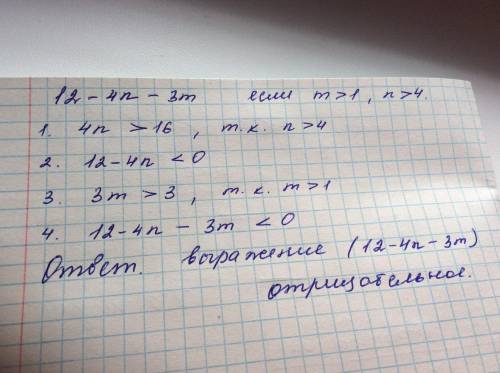 12 - 4n - 3m если m>1, n>4.
1. 4n >16, т.к. n>4
2. 12-4n <0
3. 3m >3, т.к. m>1
4. 12-4n - 3m <0
Ответ. выражение (12-4n-3m)
отрицательное.